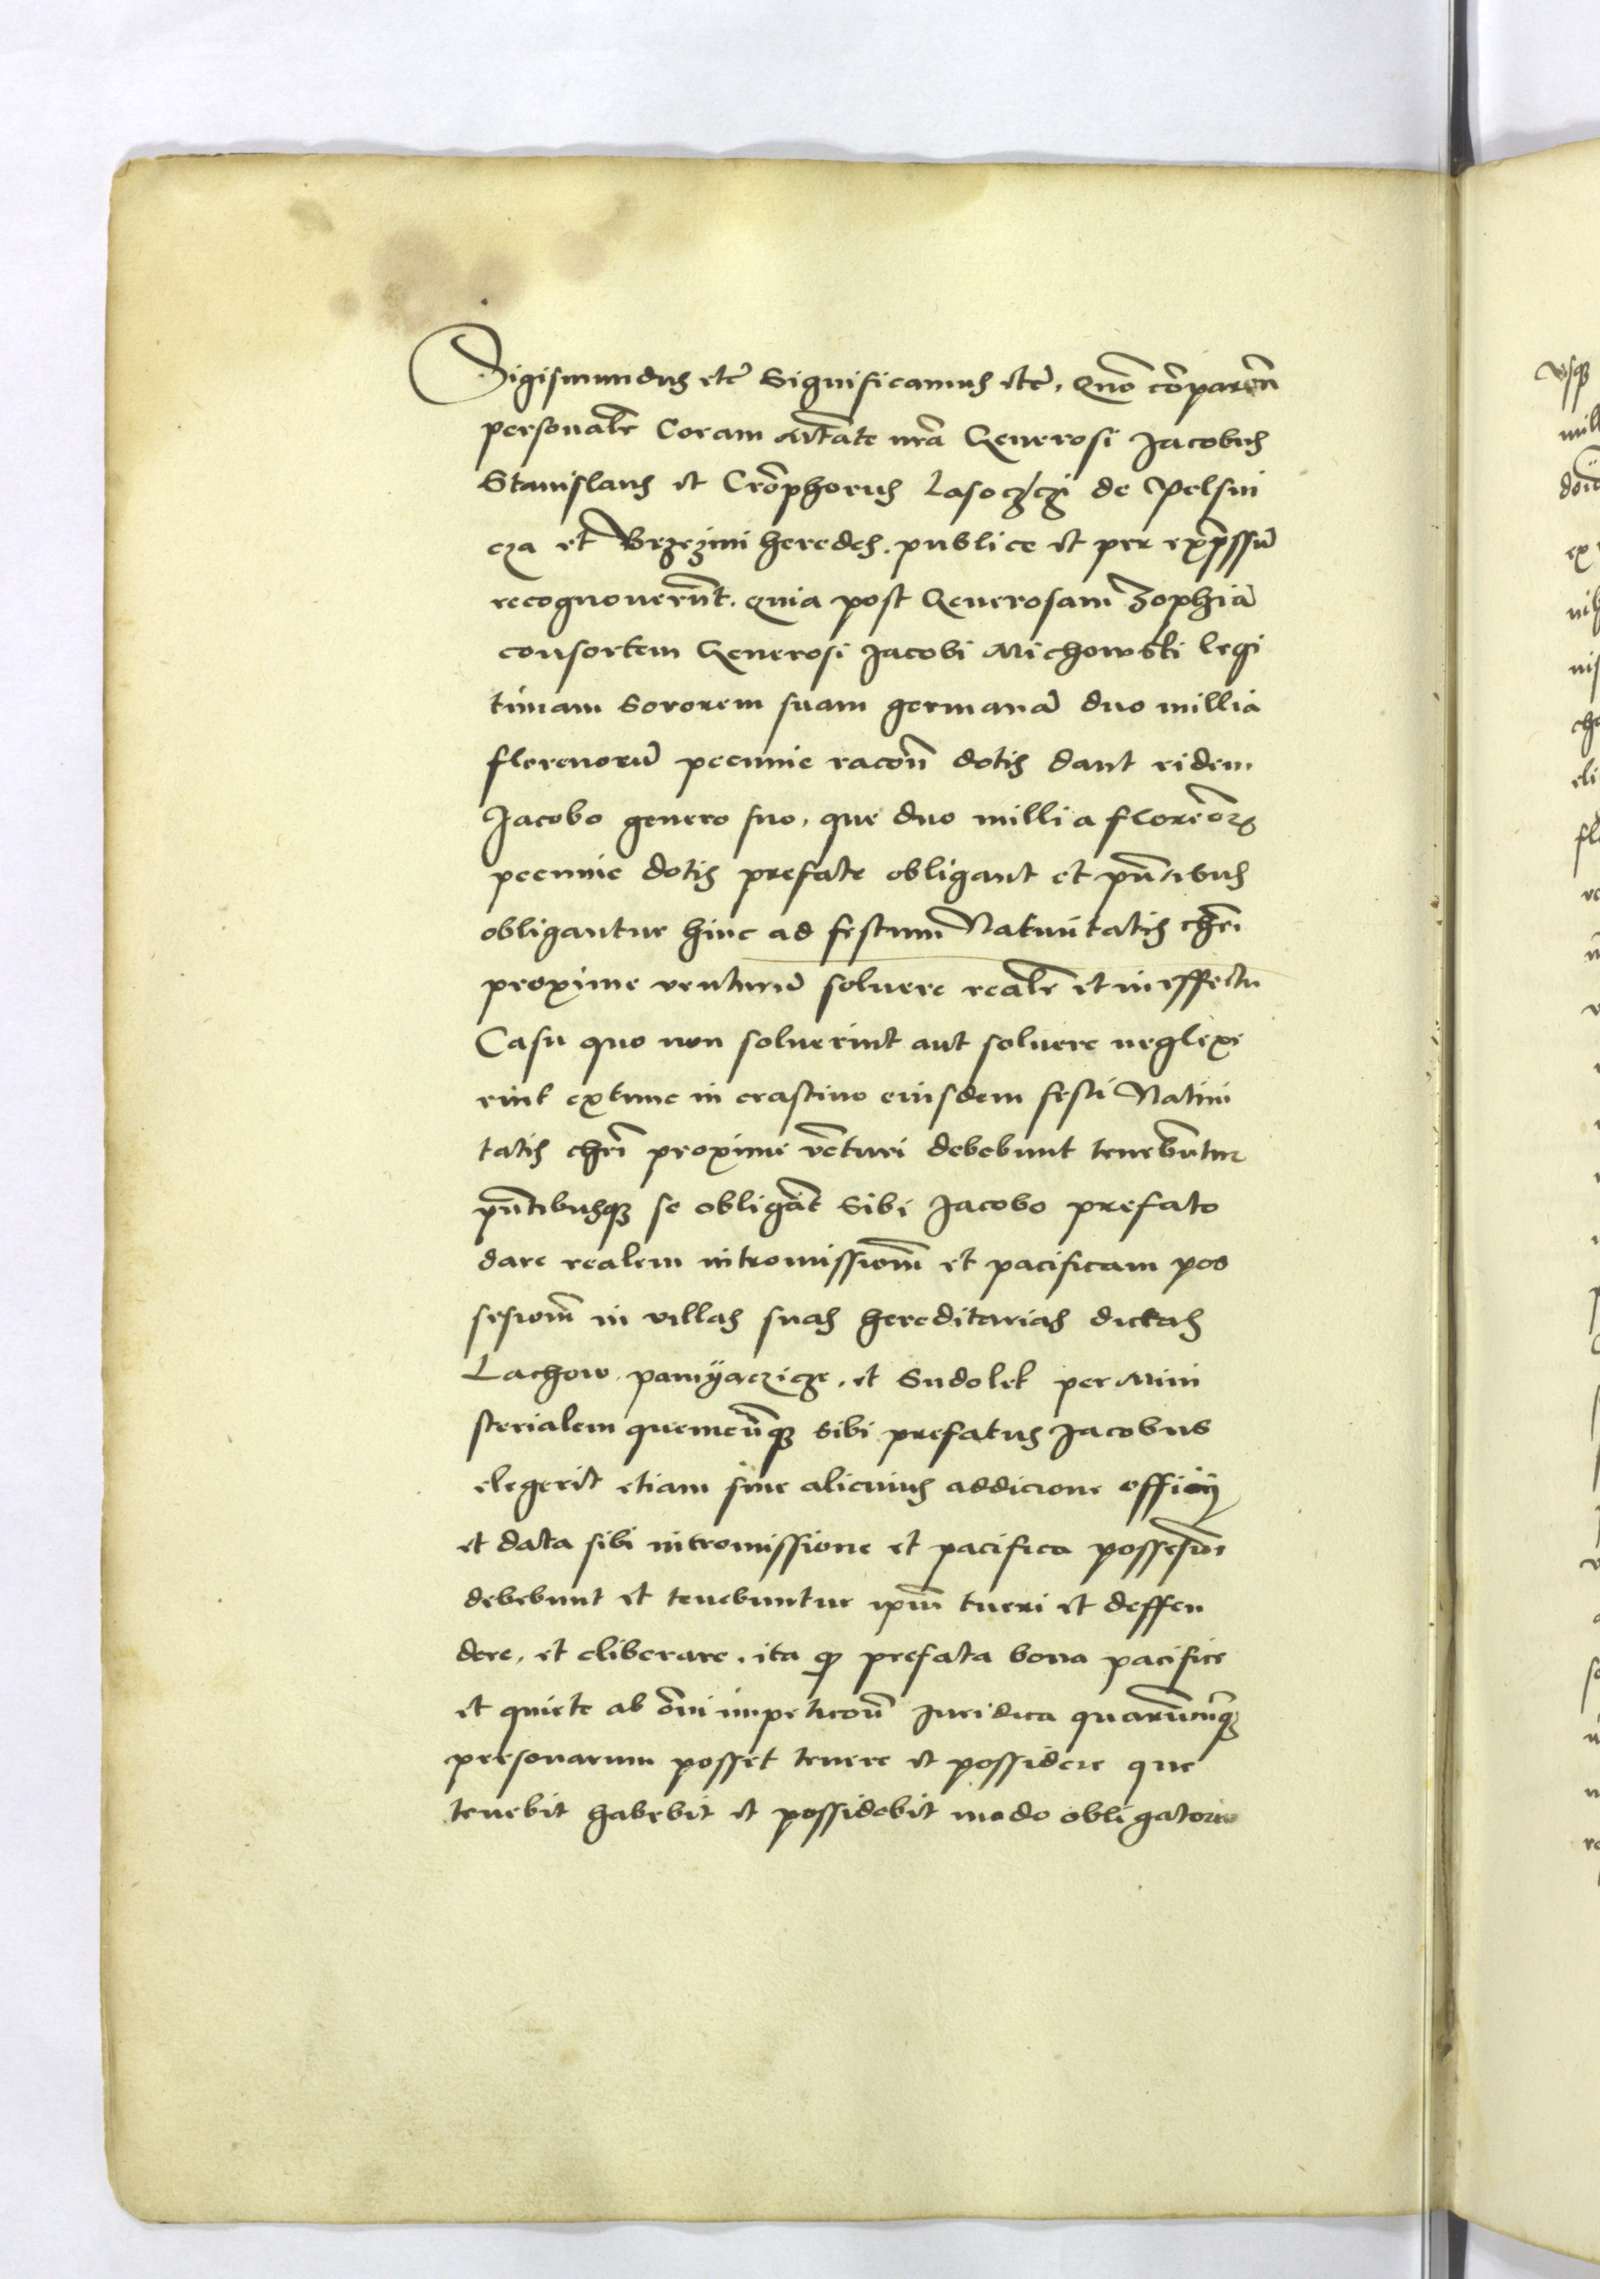 Sigismundus etc̃ Significamus etc̃. Quõ cõparen̄
personalr̃ Coram Mtãte nrã Generosi Jacobus
Stanislaus et Crõphorus Lasoczczi de Pelsni
cza et Brzezini heredes. publice et per exp̃ssũ
recognouerũt. Quia post Generosam Zophiã
consortem Generosi Jacobi Michowski legi
timam Sororem suam germanã duo millia
florenorũ pecunie racoñ dotis dant eidem
Jacobo genero suo, que duo millia floreoꝝ
pecunie dotis prefate obligant et pñtibus
obligantur hinc ad festum Natiuitatis chrĩ
proxime venturũ soluere realr̃ et in effectu
Casu quo non soluerint aut soluere neglexe
rint extunc in crastino eiusdem festi Natiui
tatis chrĩ proxime vẽturi debebunt tenebũtur
pñtibusqꝫ se obligãt Sibi Jacobo prefato
dare realem intromissionẽ et pacificam pos
sesionẽ in villas suas hereditarias dictas
Lachow. pamÿaczicze. et Sudolek per Mini
sterialem quemcũqꝫ Sibi prefatus Jacobus
elegerit etiam sine alicuius addicione officÿ
et data sibi intromissione et pacifica possesiõe
debebunt et tenebuntur ipm̃ tueri et deffen
dere, et eliberare. ita ꝙ prefata bona pacifice
et quiete ab õni impeticoñ Juridica quarũcũqꝫ
personarum posset tenere et possidere que
tenebit habebit et possidebit modo obligatorio
vsqꝫ